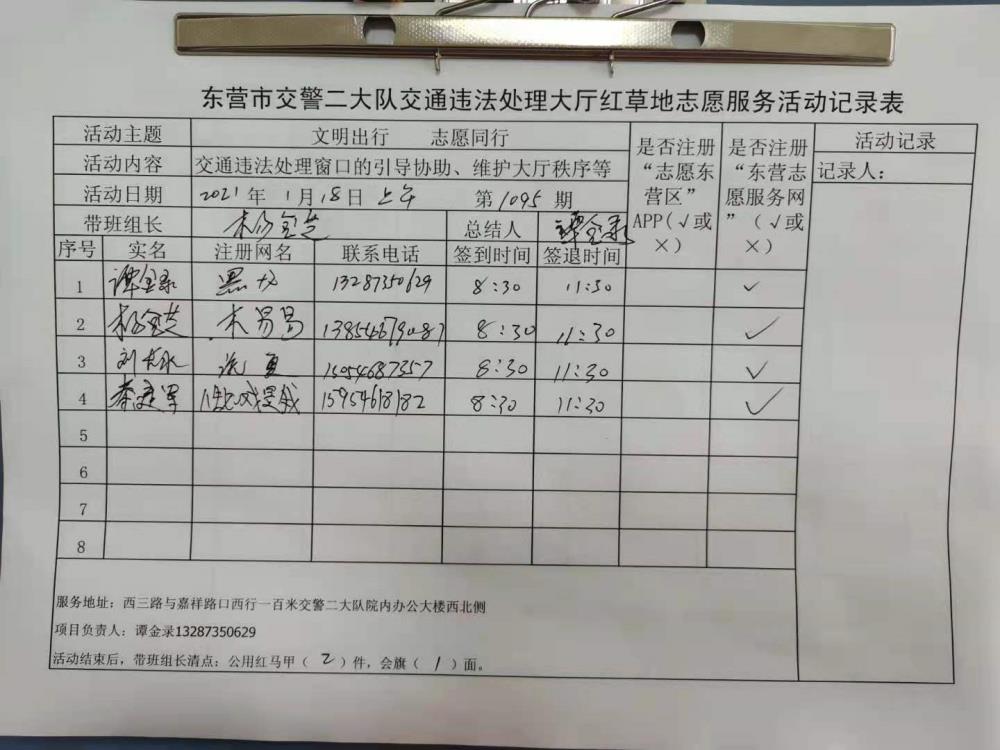 东营市交警二大队交通违法处理大厅红草地志愿服务活动记录表
活动主题 文明出行 志愿同行 是否注册“志愿东营区”APP(√或×) 是否注册“东营志愿服务网”(√或×) 活动记录
活动内容 交通违法处理窗口的引导协助、维护大厅秩序等 记录人：
活动日期 2021年 1月18日 上午 第1095期
带班组长 杨金芝 总结人 谭金录
序号 实名 注册网名 联系电话 签到时间 签退时间
1 谭金录 黑龙 13287350629 8:30 11:30 ✓
2 杨金芝 木易易 13854679087 8:30 11:30 ✓
3 刘 15054687357 8:30 11:30 ✓
4 李建军 15954618182 8:30 11:30 ✓
5
6
7
8
服务地址：西三路与嘉祥路口西行一百米交警二大队院内办公大楼西北侧
项目负责人：谭金录13287350629
活动结束后，带班组长清点：公用红马甲（ 2 ）件，会旗（ 1 ）面。